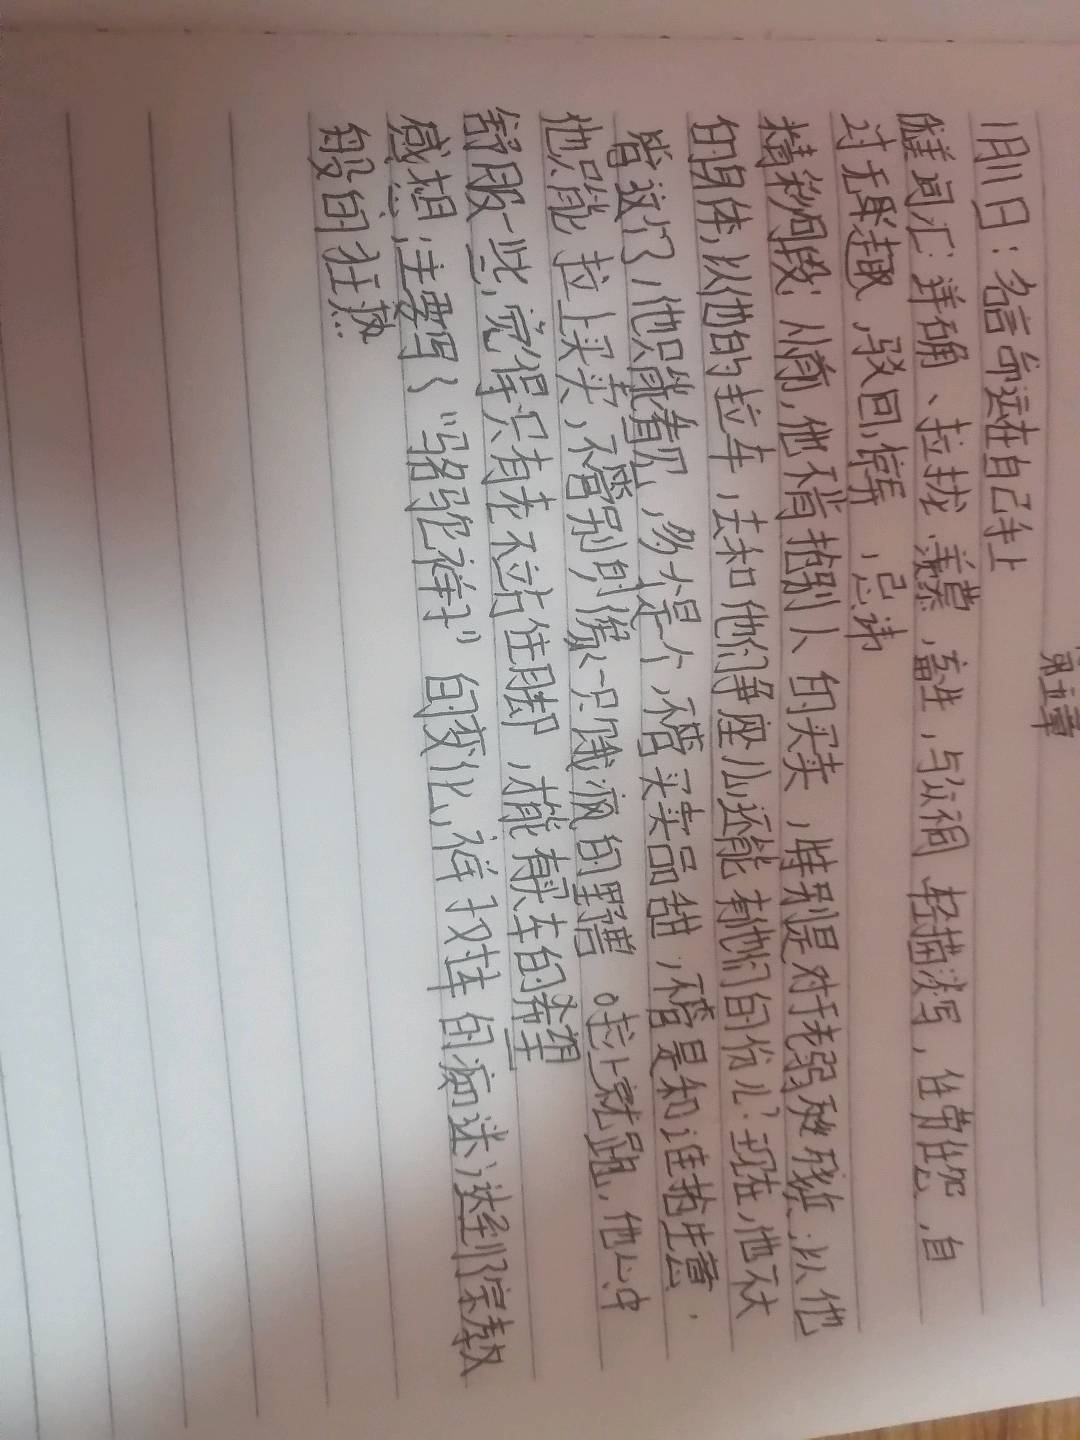 第五章
1月11日：名言命运在自己手上
词汇：详确、拉拢、羡慕，畜生，与众不同 轻描淡写，任劳任怨，自
过无聊趣，驳回，停弄，忌讳
精彩片段：从前，他不肯抢别人的买卖，特别是对于老弱残疾；以他
的身体，以他的拉车，去和他们争座儿还能有他们的份儿？现在，他不大
管这个了，他只能看见，多少是个，不管买卖品甜，不管是和谁抢生意，
他只能拉上买卖，不管别的，像一只饿疯的野兽。拉上就跑，他心中
舒服一些，觉得只有老不站住脚，才能有买车的希望
感想：主要写了“骆驼祥子”的变化，祥子对车的痴迷，达到了宗教
般的狂热…